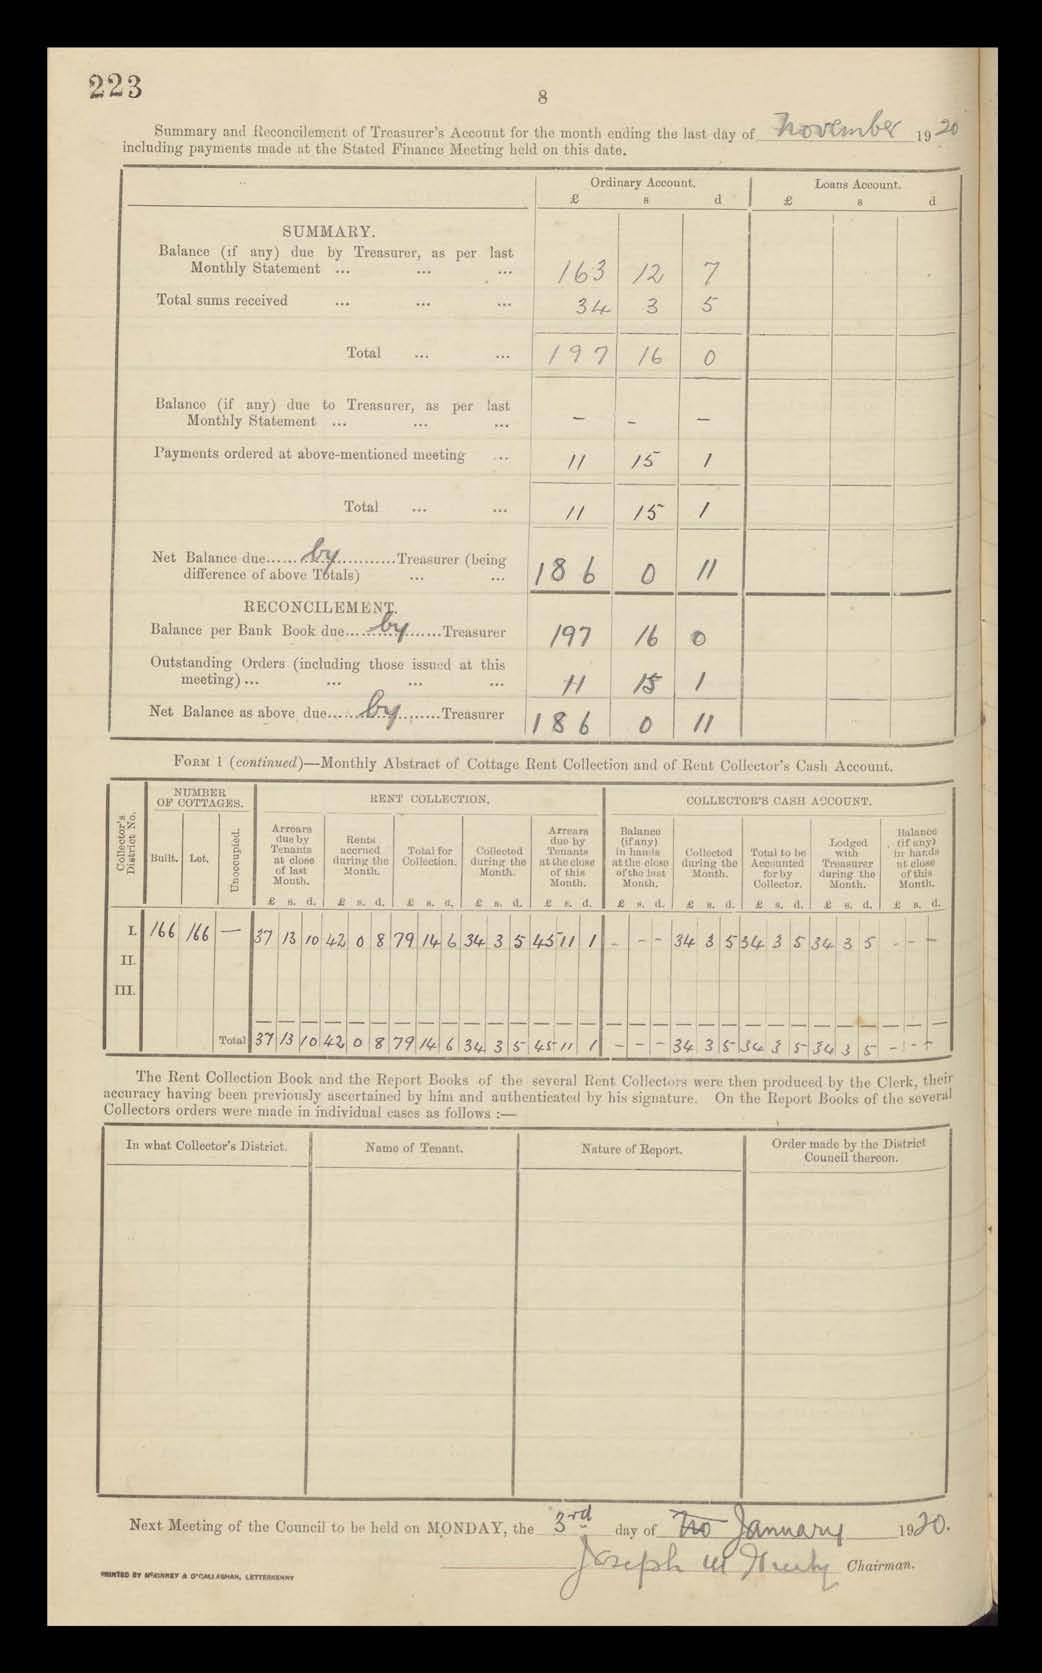 223
8
Summary and Reconcilement of Treasurer's Account for the month ending the last day of November 1920
including payments made at the Stated Finance Meeting held on this date.
Ordinary Account. Loans Account.
£ s d £ s d
SUMMARY.
Balance (if any) due by Treasurer, as per last
Monthly Statement ... ... ... 163 12 7
Total sums received ... ... ... 34 3 5
Total ... ... 197 16 0
Balance (if any) due to Treasurer, as per last
Monthly Statement ... ... ... — — —
Payments ordered at above-mentioned meeting ... 11 15 1
Total ... ... 11 15 1
Net Balance due......by............Treasurer (being
difference of above Totals) ... ... 186 0 11
RECONCILEMENT.
Balance per Bank Book due......by......Treasurer 197 16 0
Outstanding Orders (including those issued at this
meeting)... ... ... ... 11 15 1
Net Balance as above due......by......Treasurer 186 0 11
FORM 1 (continued)—Monthly Abstract of Cottage Rent Collection and of Rent Collector's Cash Account.
Collector's District No.
NUMBER OF COTTAGES. RENT COLLECTION. COLLECTOR'S CASH ACCOUNT.
Built. Let. Unoccupied. Arrears due by Tenants at close of last Month. Rents accrued during the Month. Total for Collection. Collected during the Month. Arrears due by Tenants at the close of this Month. Balance (if any) in hands at the close of the last Month. Collected during the Month. Total to be Accounted for by Collector. Lodged with Treasurer during the Month. Balance (if any) in hands at close of this Month.
£ s. d. £ s. d. £ s. d. £ s. d. £ s. d. £ s. d. £ s. d. £ s. d. £ s. d. £ s. d.
I. 166 166 — 37 13 10 42 0 8 79 14 6 34 3 5 45 11 1 - - - 34 3 5 34 3 5 34 3 5 - - -
II.
III.
Total 37 13 10 42 0 8 79 14 6 34 3 5 45 11 1 - - - 34 3 5 34 3 5 34 3 5 - - -
The Rent Collection Book and the Report Books of the several Rent Collectors were then produced by the Clerk, their
accuracy having been previously ascertained by him and authenticated by his signature. On the Report Books of the several
Collectors orders were made in individual cases as follows :—
In what Collector's District. Name of Tenant. Nature of Report. Order made by the District Council thereon.
Next Meeting of the Council to be held on MONDAY, the 3rd day of January 1920.
Joseph Chairman.
PRINTED BY McKINNEY & O'CALLAGHAN, LETTERKENNY